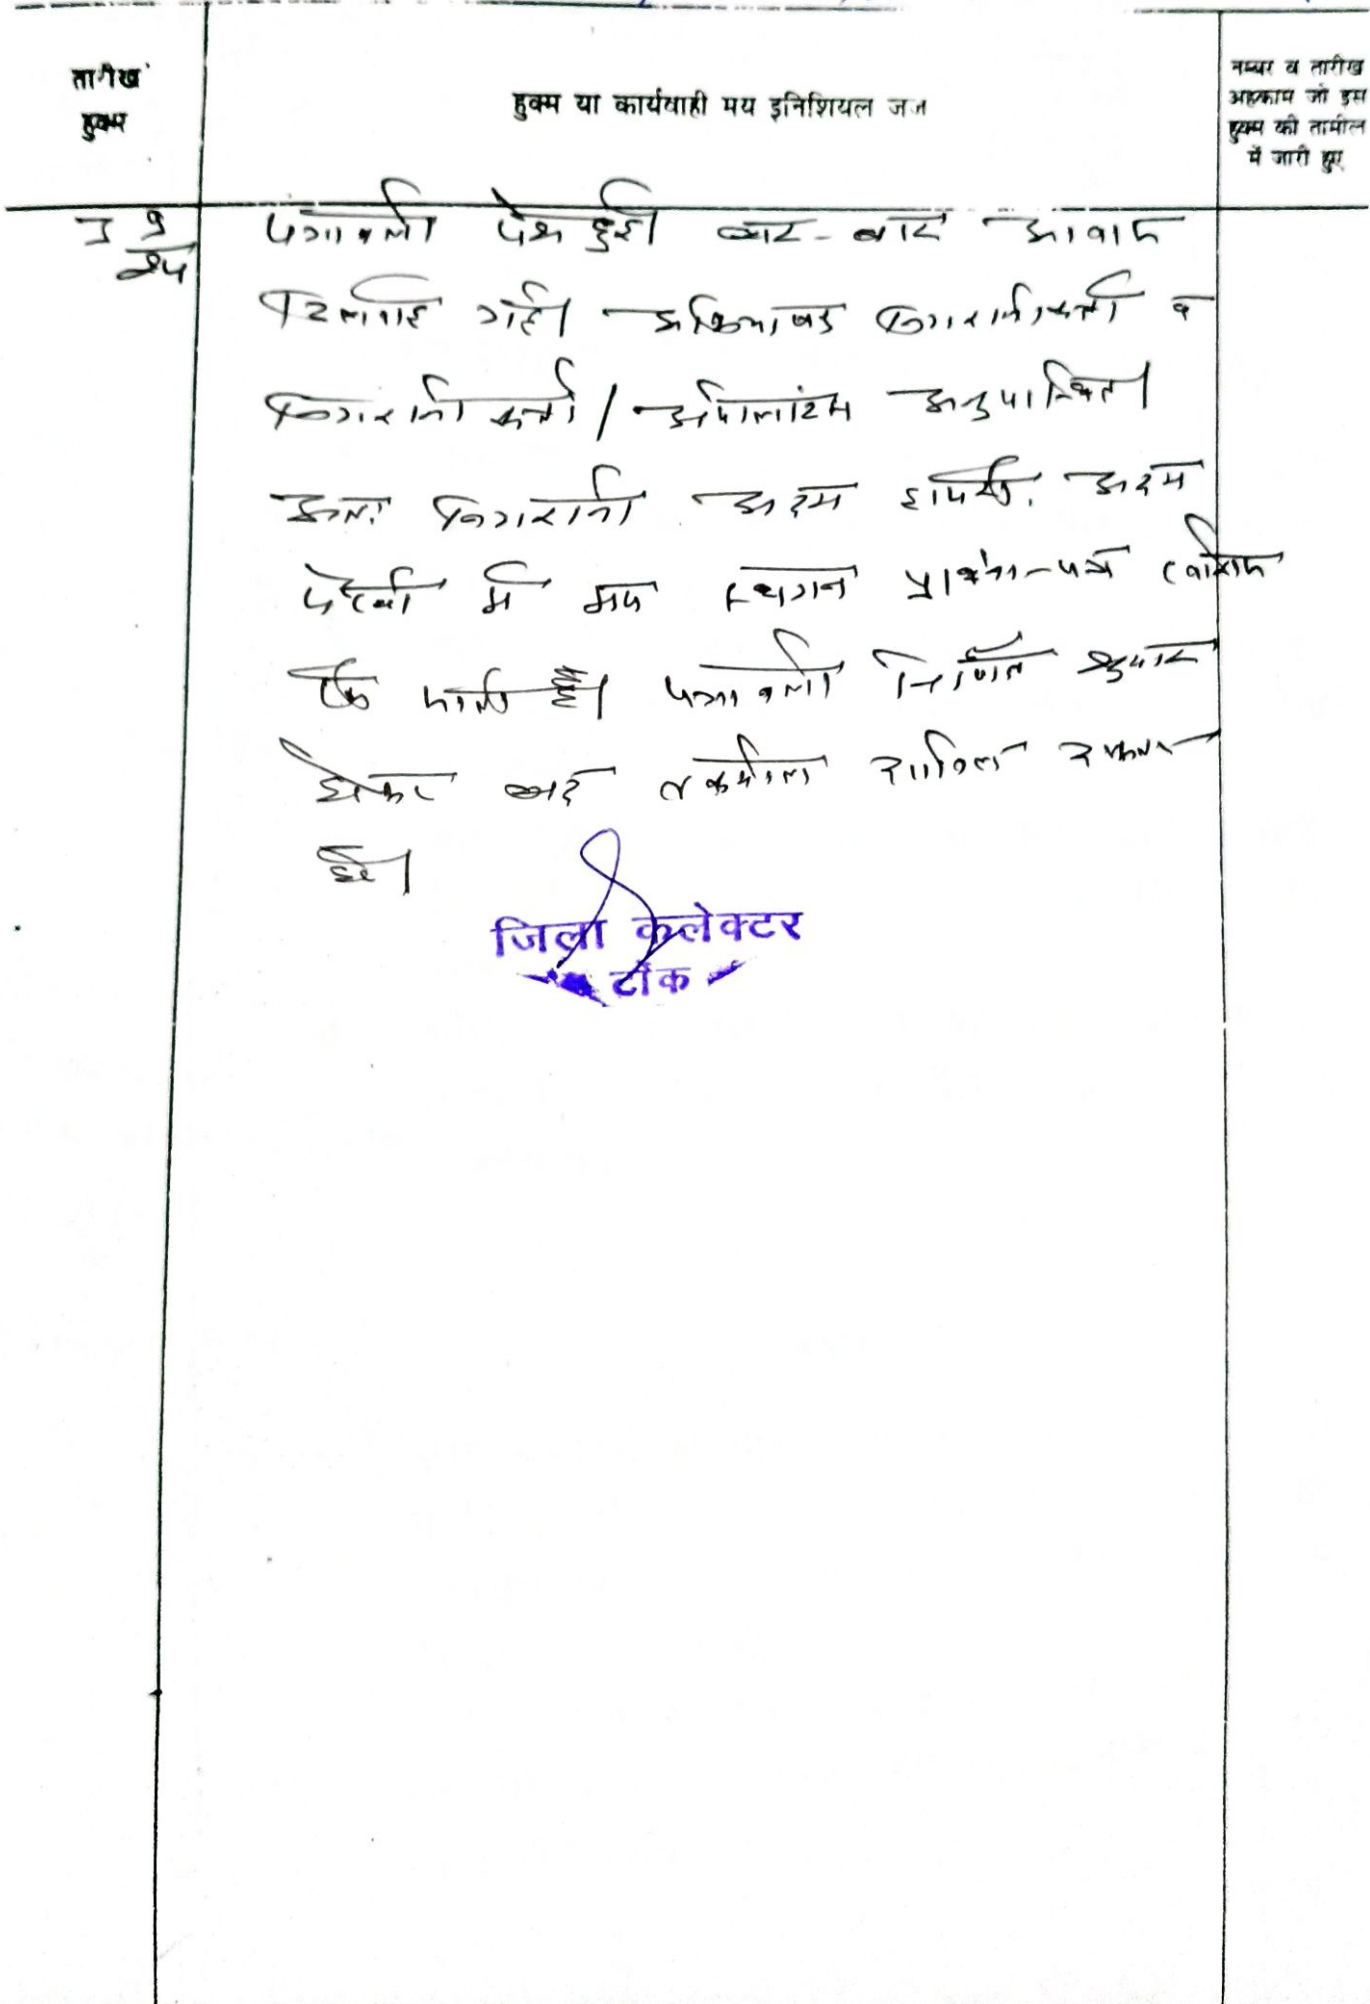 तारीख
हुक्म
हुक्म या कार्यवाही मय इनिशियल जज
नम्बर व तारीख
अहकाम जो इस
हुक्म की तामील
में जारी हुए
पत्रावली पेश हुई। बार-बार आवाज
दिलवाई गई। अभिभाषक निगरानीकर्ता व
निगरानी कर्ता / अपीलांटस अनुपस्थित।
अतः निगरानी अदम हाजरी, अदम
पैरवी में मय स्थगन प्रार्थना-पत्र खारिज
की जाती है। पत्रावली निर्णित शुमार
होकर बाद तकमील दाखिल दफ्तर
हो।
जिला कलेक्टर
टोंक